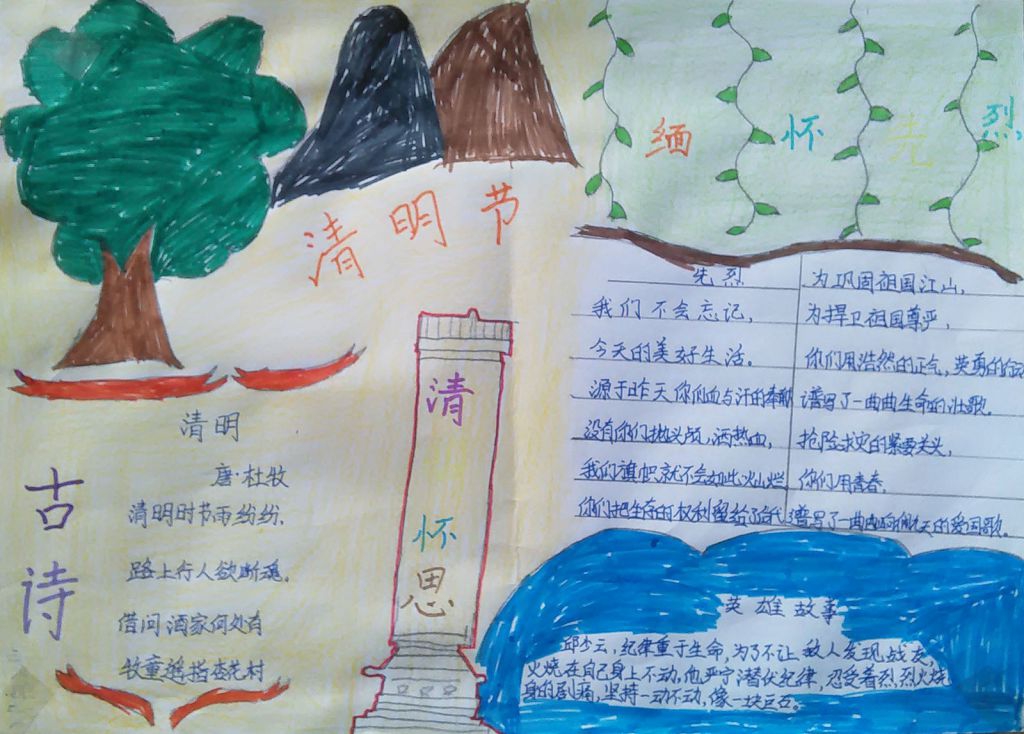 清明节
缅怀先烈
古诗
清明
唐·杜牧
清明时节雨纷纷,
路上行人欲断魂。
借问酒家何处有
牧童遥指杏花村
清明怀思
先烈
我们不会忘记,
今天的美好生活。
源于昨天你们血与汗的奉献
没有你们抛头颅,洒热血,
我们旗帜就不会如此火灿烂
你们把生存的权利留给了后代
为巩固祖国江山,
为捍卫祖国尊严,
你们用浩然的正气,英勇的
谱写了一曲曲生命的壮歌。
抢险救灾的紧要关头,
你们用青春,
谱写了一曲曲响彻天的爱国歌。
英雄故事
邱少云,纪律重于生命,为了不让敌人发现战友,
火烧在自己身上不动,他严守潜伏纪律,忍受着烈烈火烧
身的剧痛,坚持一动不动,像一块巨石。